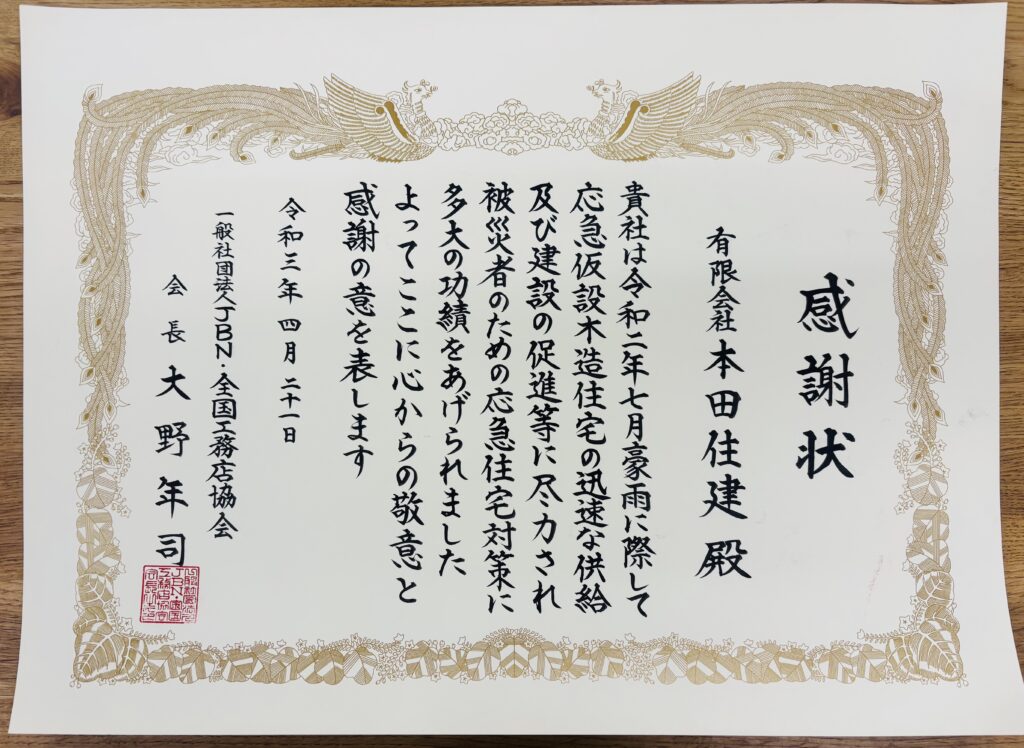 感謝状
有限会社 本田住建 殿
貴社は令和二年七月豪雨に際して
応急仮設木造住宅の迅速な供給
及び建設の促進等に尽力され
被災者のための応急住宅対策に
多大の功績をあげられました
よってここに心からの敬意と
感謝の意を表します
令和三年 四月 二十一日
一般社団法人JBN・全国工務店協会
会長 大野年司